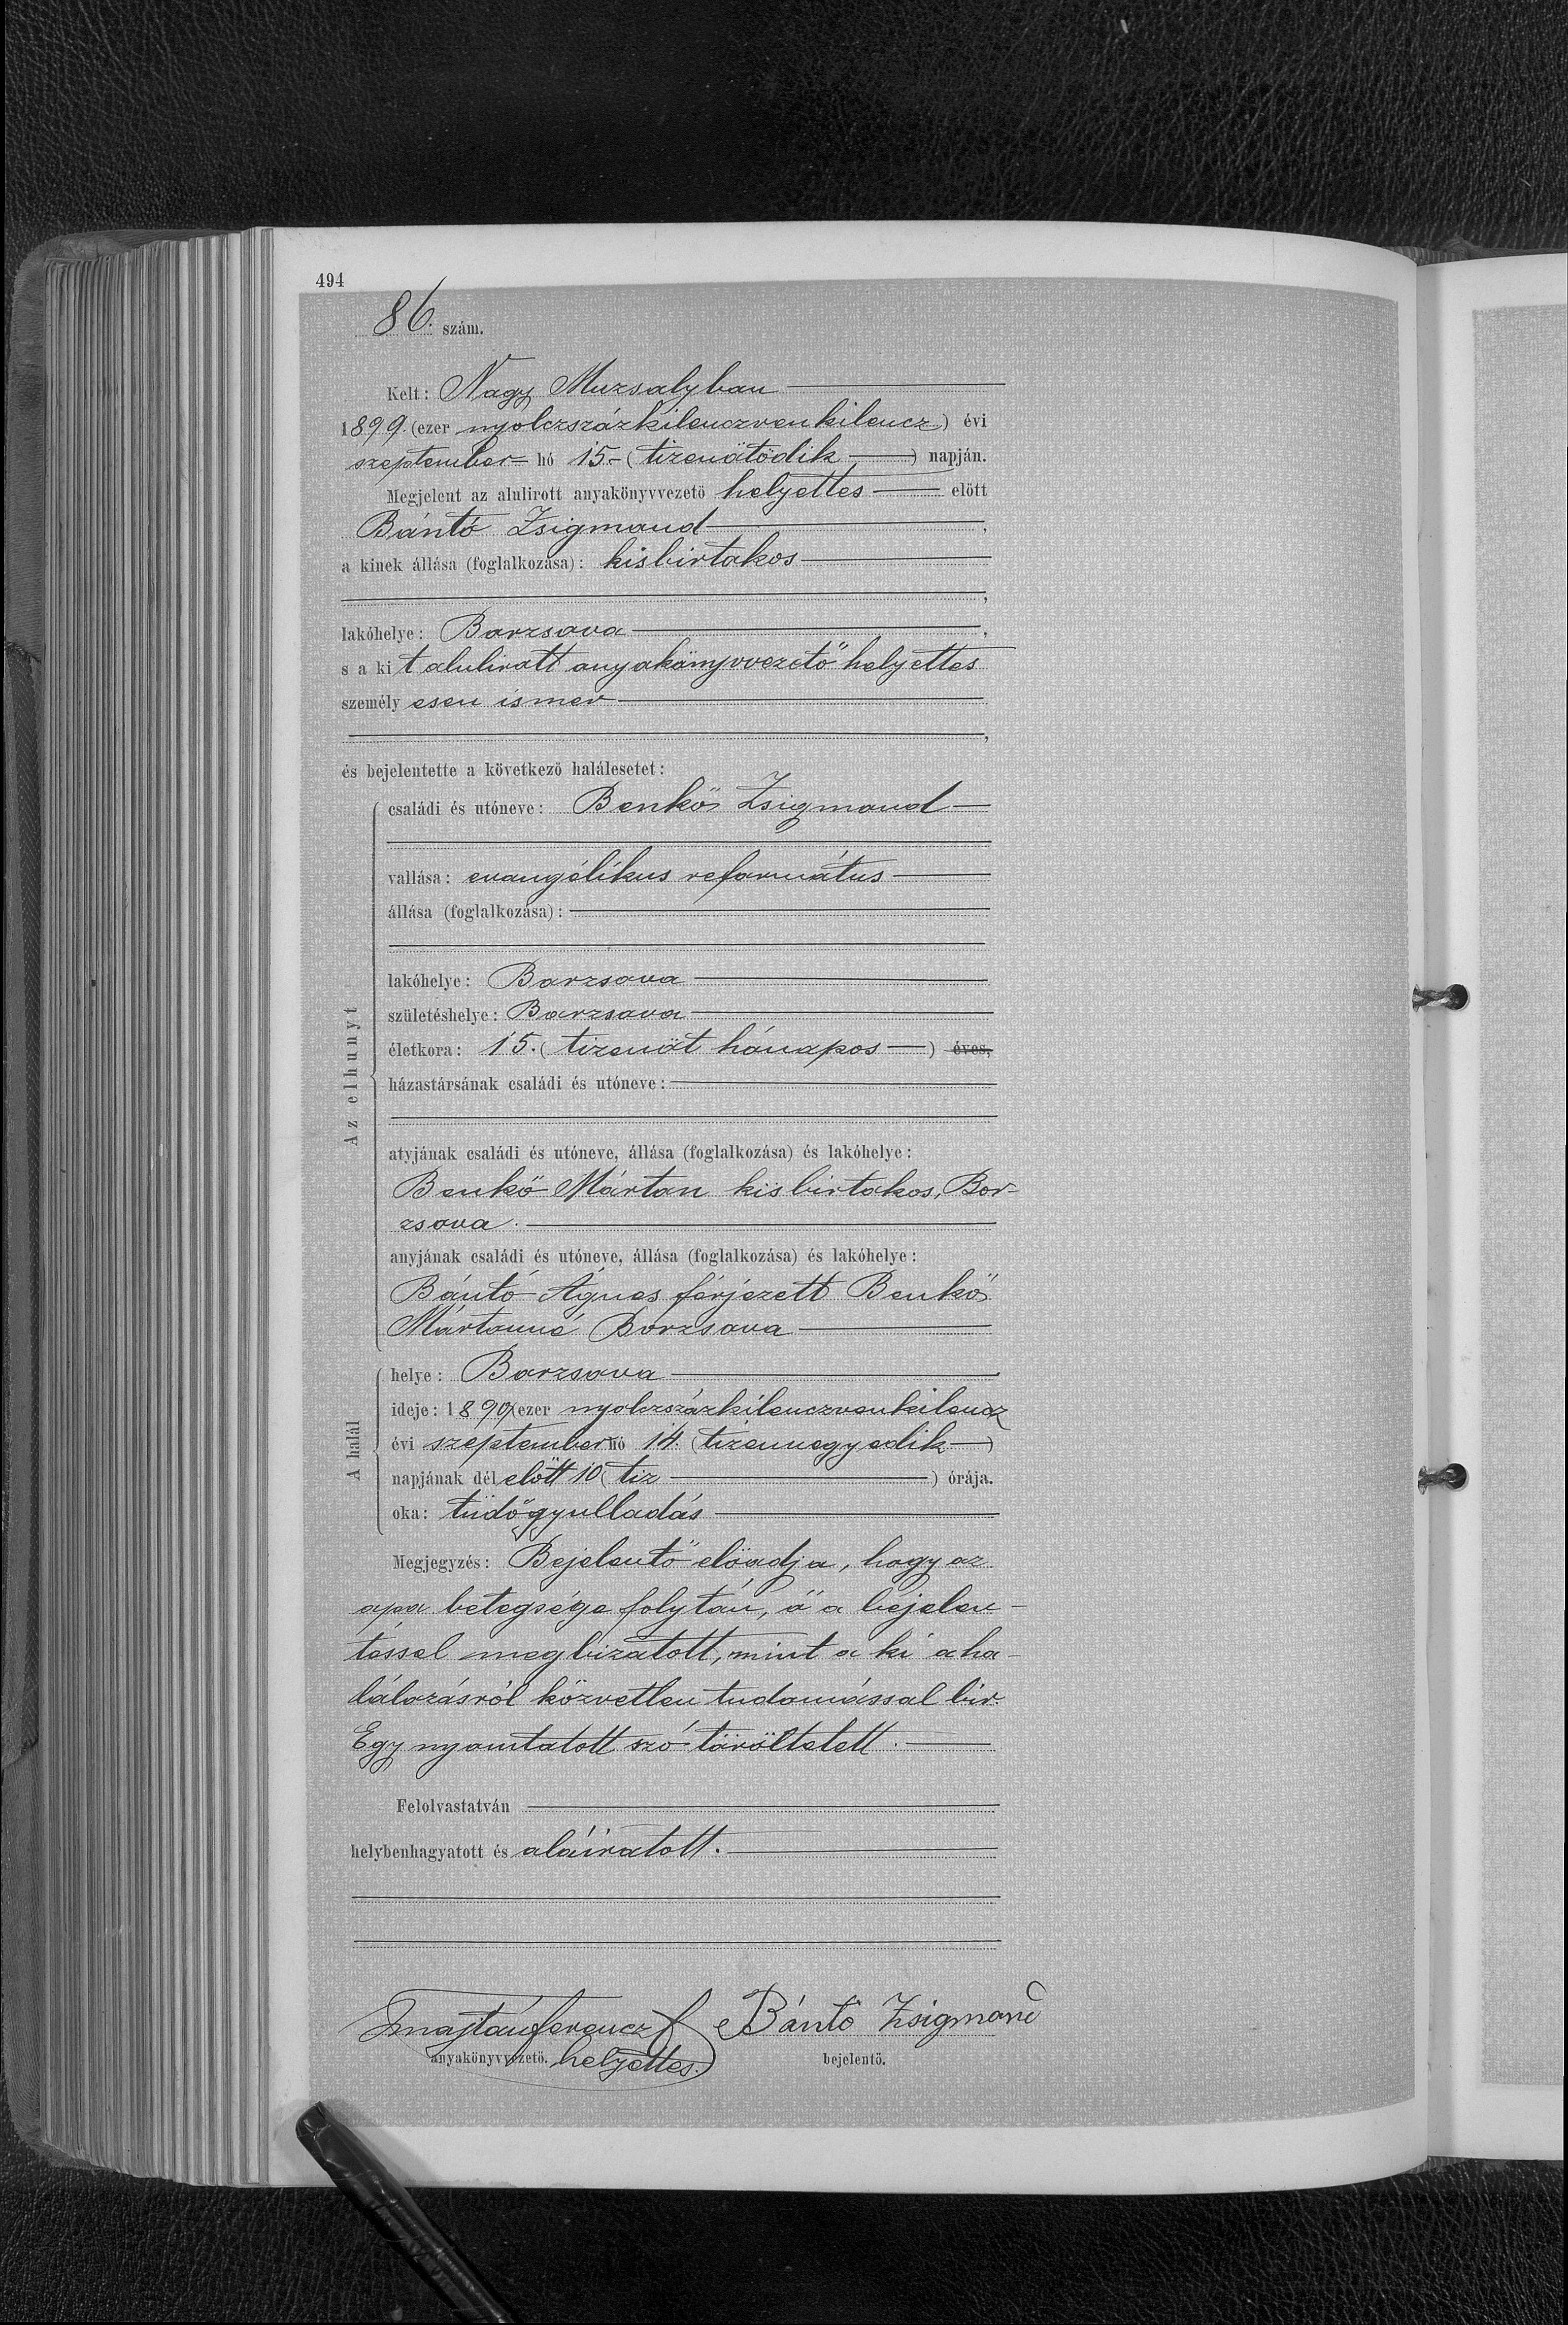 494
86. szám.
Kelt: Nagy Muzsalyban
1899. (ezer nyolczszázkilenczvenkilencz) évi
szeptember hó 15.- (tizenötödik) napján.
Megjelent az alulirott anyakönyvvezető helyettes előtt
Bántó Zsigmond,
a kinek állása (foglalkozása): kisbirtokos
,
lakóhelye: Borzsova,
s a kit alulirott anyakönyvvezető helyettes
személyesen ismer
,
és bejelentette a következő halálesetet:
Az elhunyt
családi és utóneve: Benkő Zsigmond
vallása: evangélikus református
állása (foglalkozása):
lakóhelye: Borzsova
születéshelye: Borzsova
életkora: 15. (tizenöt hónapos) éves,
házastársának családi és utóneve:
atyjának családi és utóneve, állása (foglalkozása) és lakóhelye:
Benkő Márton kisbirtokos, Bor-
zsova.
anyjának családi és utóneve, állása (foglalkozása) és lakóhelye:
Bántó Ágnes férjezett Benkő
Mártonné Borzsova
A halál
helye: Borzsova
ideje: 1899 (ezer nyolczszázkilenczvenkilencz
évi szeptember hó 14. (tizennegyedik)
napjának délelőtt 10 (tiz) órája.
oka: tüdőgyulladás
Megjegyzés: Bejelentő előadja, hogy az
apa betegsége folytán, ő a bejelen-
téssel megbizatott, mint a ki a ha-
lálozásról közvetlen tudomással bir.
Egy nyomtatott szó töröltetett.
Felolvastatván
helybenhagyatott és aláiratott.
Smajtán ferencz Bántó Zsigmond
anyakönyvvezető. helyettes. bejelentő.